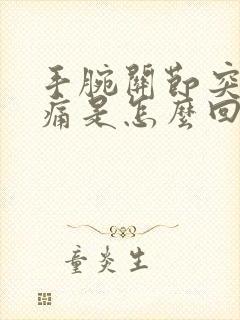 手腕關節突
痛是怎麼回
童炎生